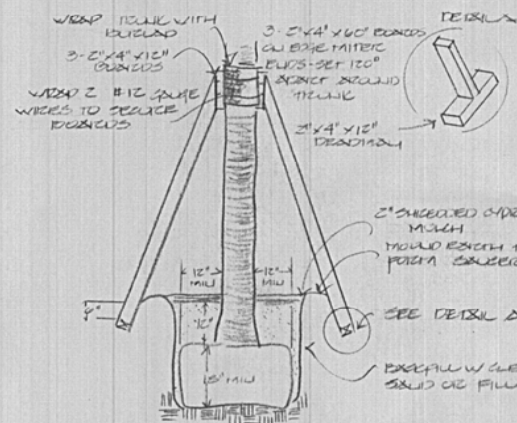 WRAP TRUNK WITH
BURLAP
3- 2"X4" X12"
BOARDS
WRAP 2 #12 GAUGE
WIRES TO SECURE
BOARDS
3- 2"X4" X 60" BOARDS
ON EDGE MITER
ENDS-SET 120°
APART AROUND
TRUNK
DETAIL A
2"X4" X12"
DEADMAN
2" SHREDDED
MULCH
MOUND EARTH
FORM SAUCER
SEE DETAIL A
BACKFILL W/
SAND OR FILL
12"
MIN
12"
MIN
12"
MIN